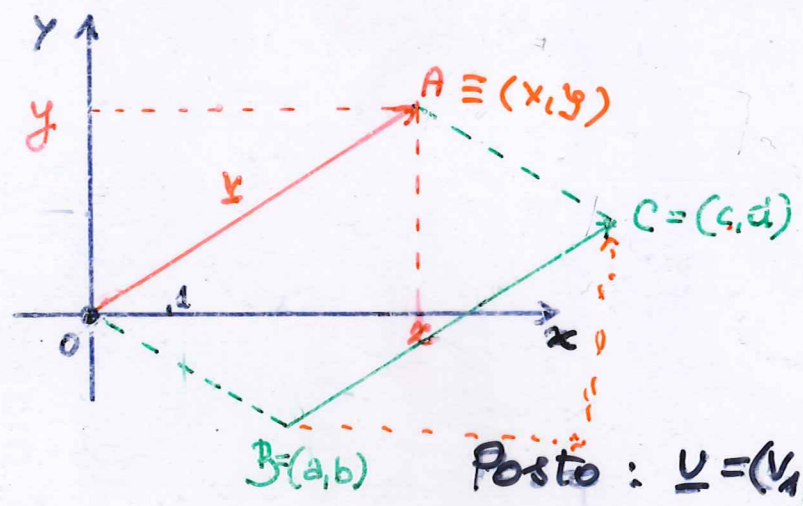 Y
A ≡ (x,y)
y
v
C = (c,d)
1
0
x
x
B=(a,b)
Posto : v =(v₁